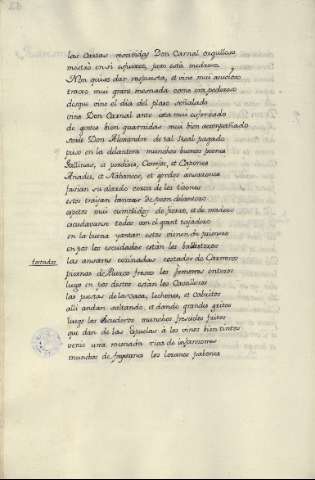 las Cartas recibidas Don Carnal orgulloso
mostró en sí esfuerzo, pero está medroso
Non quiso dar respuesta, et vino mui acucioso
traxo mui grant mesnada como era poderoso
desque vino el dia del plazo señalado
vino Don Carnal ante esta mui esforzado
de gentes bien guarnidas mui bien acompañado
serie Don Alexandre de tal real pagado
puso en la delantera muchos buenos peones
Gallinas, et perdices, Conejos, et Capones
Anades, et Nabancos, et gordos ansarones
fasian su alardo cerca de los tisones
estos trayan lanzas de peon delantero
espetos mui complidos de fierro, et de madero
escudavanse todos con el grant tajadero
en la buena yantar estos vienen de primero
en pos los escudados estan los ballesteros
tostados
las ansares cecinadas costados de Carneros
piernas de Puerco fresco los jamones enteros
luego en pos destos estan los Cavalleros
las puestas de la vaca, lechones, et cabritos
alli andan saltando, et dando grandes gritos
luego los Escuderos muchos fresuelos fritos
que dan de las Espuelas a los vinos bien tintos
venia una mesnada rica de infanzones
muchos de faysanes los lozanos pabones